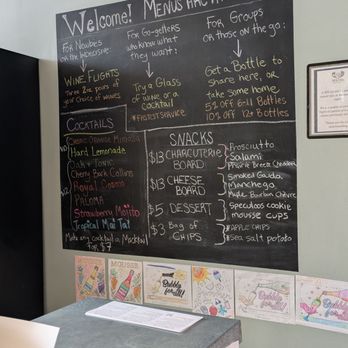 Welcome! MENUS ARE
For Newbies
or the Indecisive:
WINE FLIGHTS
Three 2oz pours of
your choice of wines
For Go-getters
who know what
they want:
Try a Glass
of wine or a
cocktail
#FASTESTSERVICE
For Groups
or those on the go:
Get a Bottle to
share here, or
take some home
5% OFF 6-11 Bottles
10% OFF 12+ Bottles
COCKTAILS
Mimosa
Hard Lemonade
& Tonic
Cherry Bock Collins
Royal Cosmo
PALOMA
Strawberry Mojito
Tropical Mai Tai
Make any cocktail a Mocktail
for $7
SNACKS
$13 CHARCUTERIE
BOARD
Prosciutto
Salami
Prairie Breeze Cheddar
$13 CHEESE
BOARD
Smoked Gouda
Manchego
Maple Bourbon Chèvre
$5 DESSERT
Speculoos cookie
mousse cups
$3 Bag of
CHIPS
APPLE CHIPS
sea salt potato
Bubbly
for all!
Bubbly
for all!
Bubbly
for all!